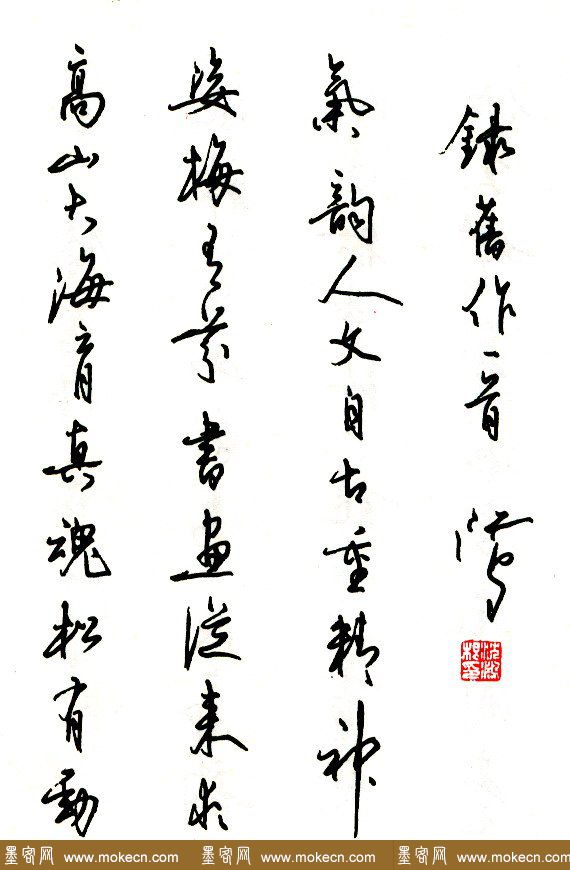 高山大海育真魂松有勁
姿梅有芬書畫從來求
氣韻人文自古重精神
錄舊作一首
墨客网 www.mokecn.com 墨客网 www.mokecn.com 墨客网 www.mokecn.com